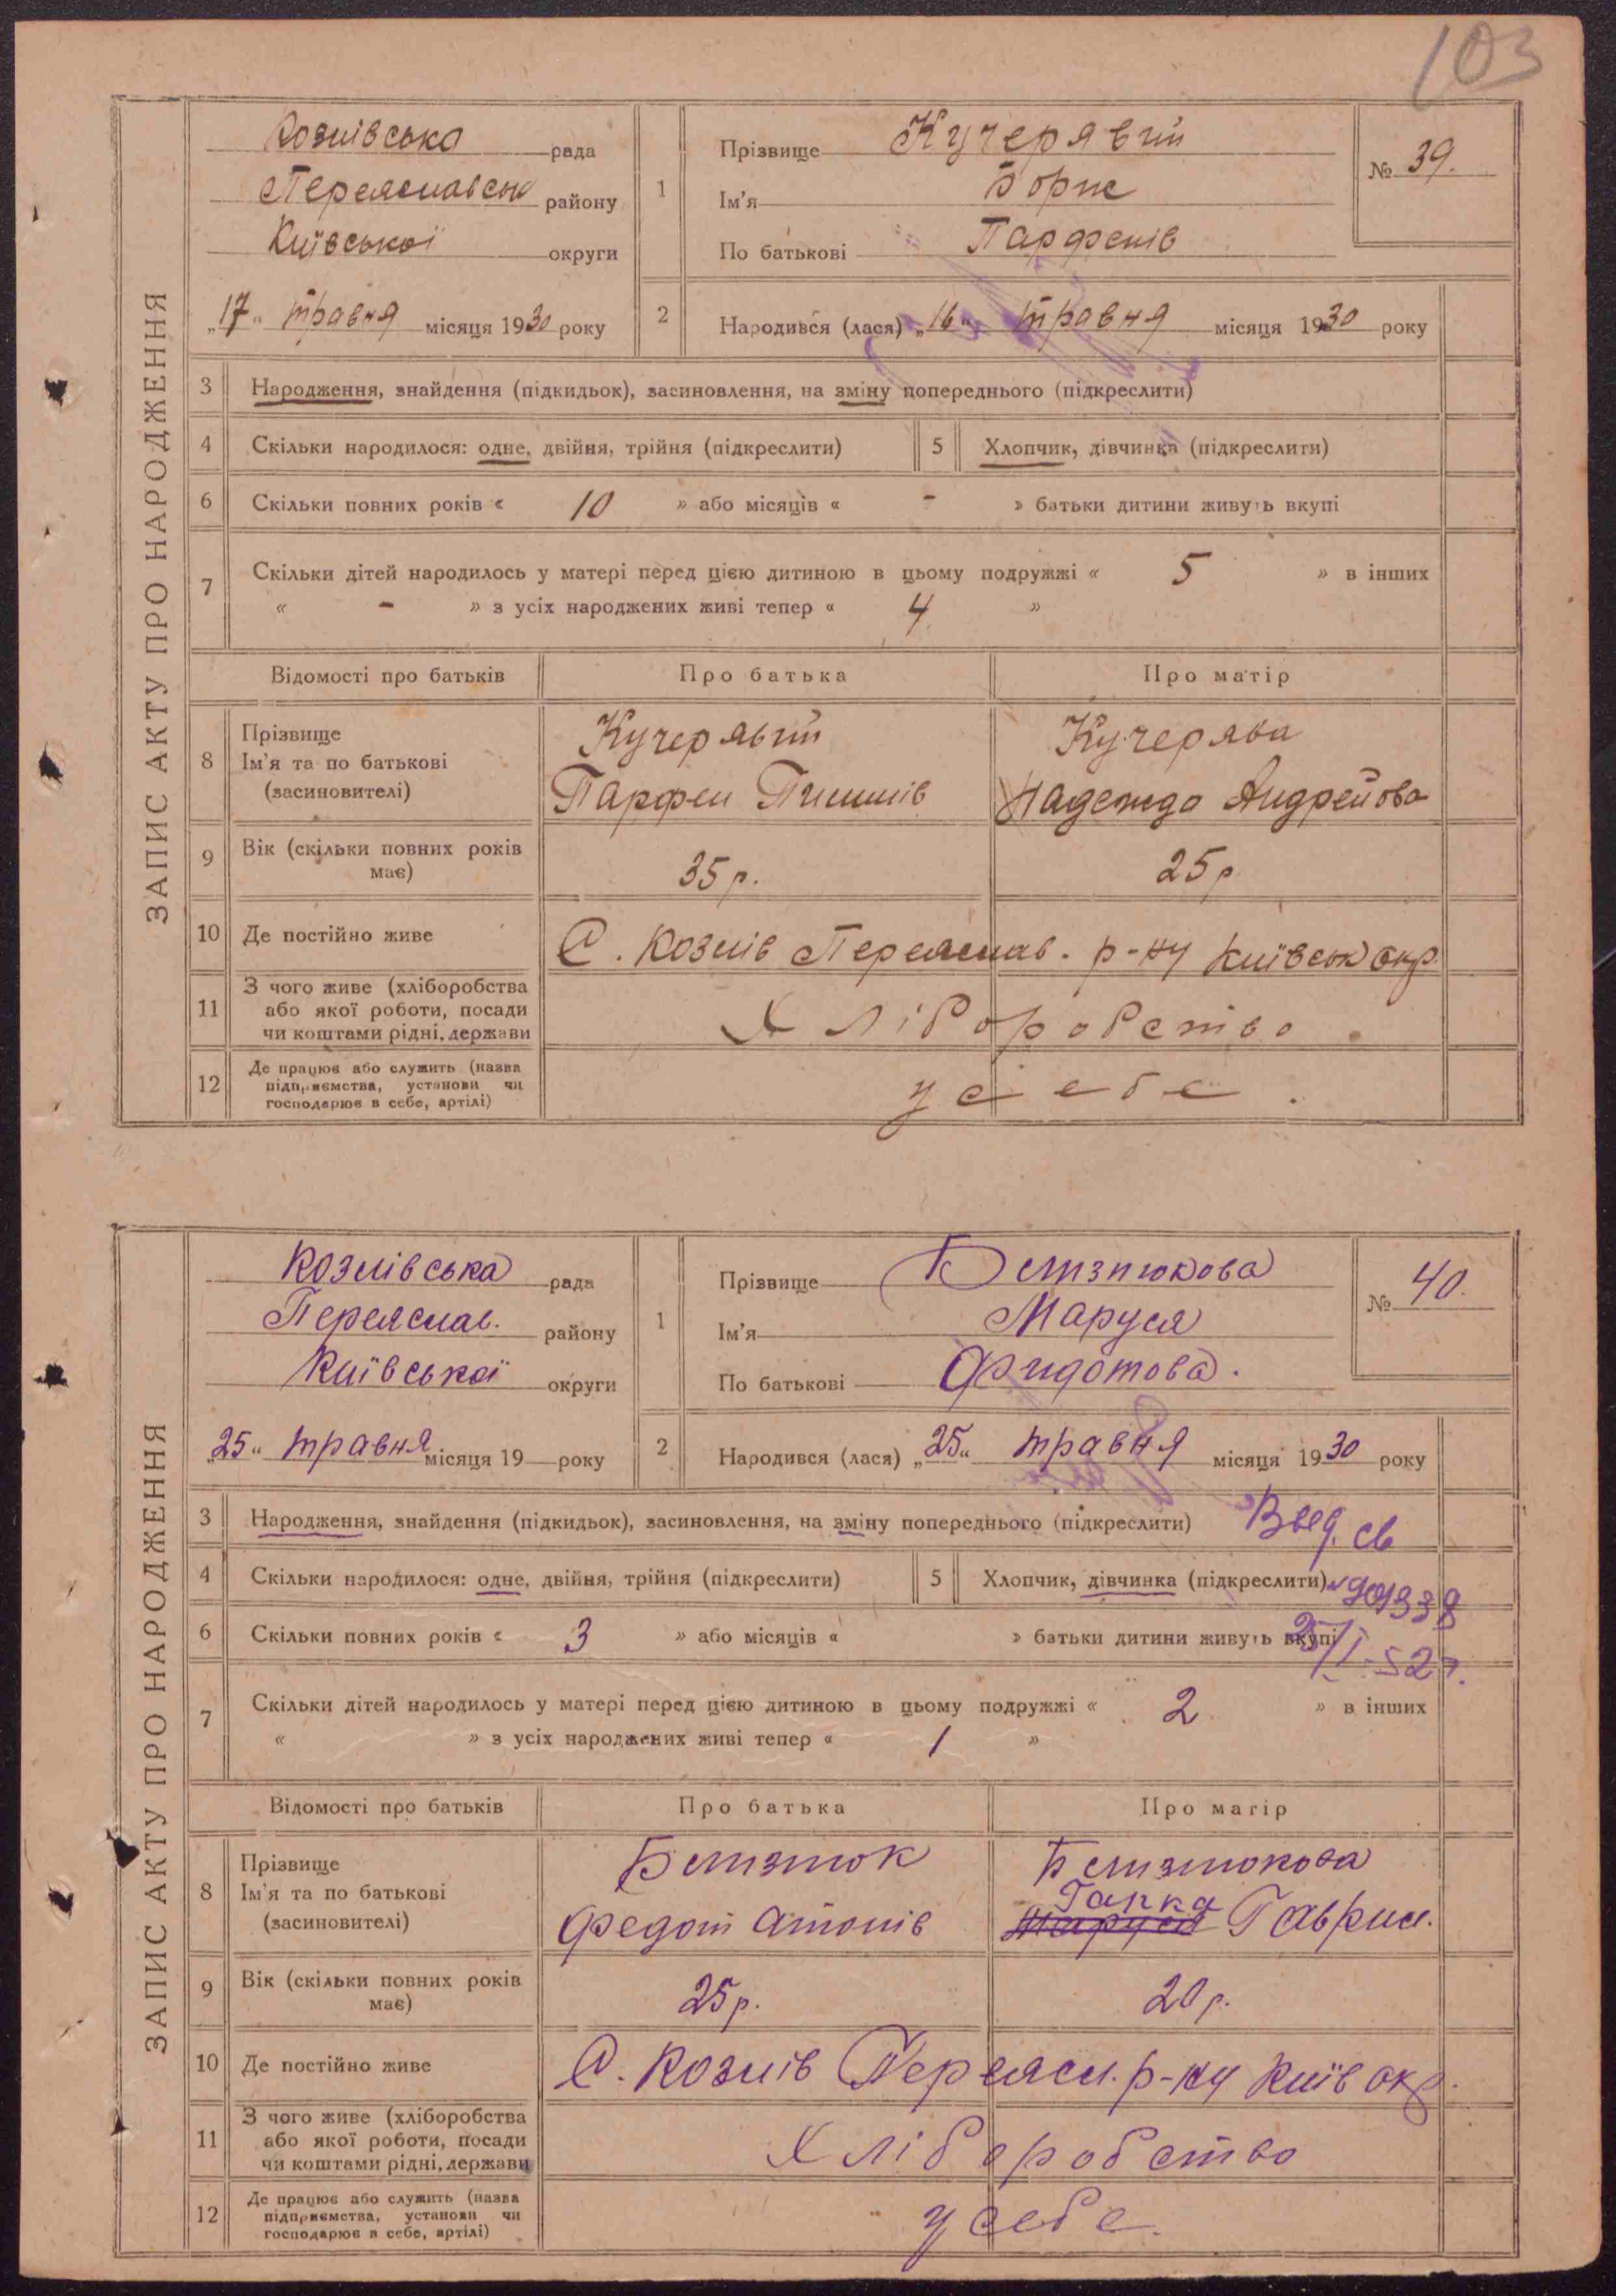 103
ЗАПИС АКТУ ПРО НАРОДЖЕННЯ
Козлівська рада
Переяславськ району
Київської округи
„17“ травня місяця 1930 року
1
Прізвище Кучерявий
Ім'я Борис
По батькові Парфенів
№ 39.
2
Народився (лася) „16“ травня місяця 1930 року
3 Народження, знайдення (підкидьок), засиновлення, на зміну попереднього (підкреслити)
4 Скільки народилося: одне, двійня, трійня (підкреслити) 5 Хлопчик, дівчинка (підкреслити)
6 Скільки повних років « 10 » або місяців « - » батьки дитини живуть вкупі
7 Скільки дітей народилось у матері перед цією дитиною в цьому подружжі « 5 » в інших
« - » з усіх народжених живі тепер « 4 »
Відомості про батьків Про батька Про матір
8 Прізвище
Ім'я та по батькові
(засиновителі)
Кучерявий
Парфен
Кучерява
Надежда Андрейова
9 Вік (скільки повних років
має)
35 р. 25 р
10 Де постійно живе С. Козлів Переяслав. р-ну Київськ окр.
11 З чого живе (хліборобства
або якої роботи, посади
чи коштами рідні, держави
Хліборобство
12 Де працює або служить (назва
підприємства, установи чи
господарює в себе, артілі)
у себе.
ЗАПИС АКТУ ПРО НАРОДЖЕННЯ
Козлівська рада
Переяслав. району
Київської округи
„25“ травня місяця 19 року
1
Прізвище
Ім'я Маруся
По батькові Фидотова.
№ 40.
2
Народився (лася) „25“ травня місяця 1930 року
3 Народження, знайдення (підкидьок), засиновлення, на зміну попереднього (підкреслити)
4 Скільки народилося: одне, двійня, трійня (підкреслити) 5 Хлопчик, дівчинка (підкреслити)
6 Скільки повних років « 3 » або місяців « » батьки дитини живуть вкупі
25/I-52 г.
7 Скільки дітей народилось у матері перед цією дитиною в цьому подружжі « 2 » в інших
« » з усіх народжених живі тепер « 1 »
Відомості про батьків Про батька Про матір
8 Прізвище
Ім'я та по батькові
(засиновителі)
Федот Антонів
Ганка
Маруся Гаврил.
9 Вік (скільки повних років
має)
25 р. 20 р.
10 Де постійно живе С. Козлів Переясл. р-ну Київ окр.
11 З чого живе (хліборобства
або якої роботи, посади
чи коштами рідні, держави
Хліборобство
12 Де працює або служить (назва
підприємства, установи чи
господарює в себе, артілі)
у себе.